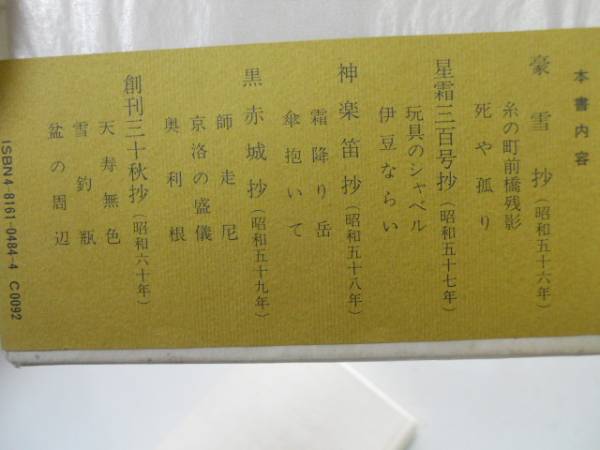 本書内容
豪雪抄（昭和五十六年）
糸の町前橋残影
死や孤り
星霜三百号抄（昭和五十七年）
玩具のシャベル
伊豆ならい
神楽笛抄（昭和五十八年）
霜降り岳
傘抱いて
黒赤城抄（昭和五十九年）
師走尼
京洛の盛儀
奥利根
創刊三十秋抄（昭和六十年）
天寿無色
雪釣瓶
盆の周辺
ISBN4-8161-0484-4 C0092